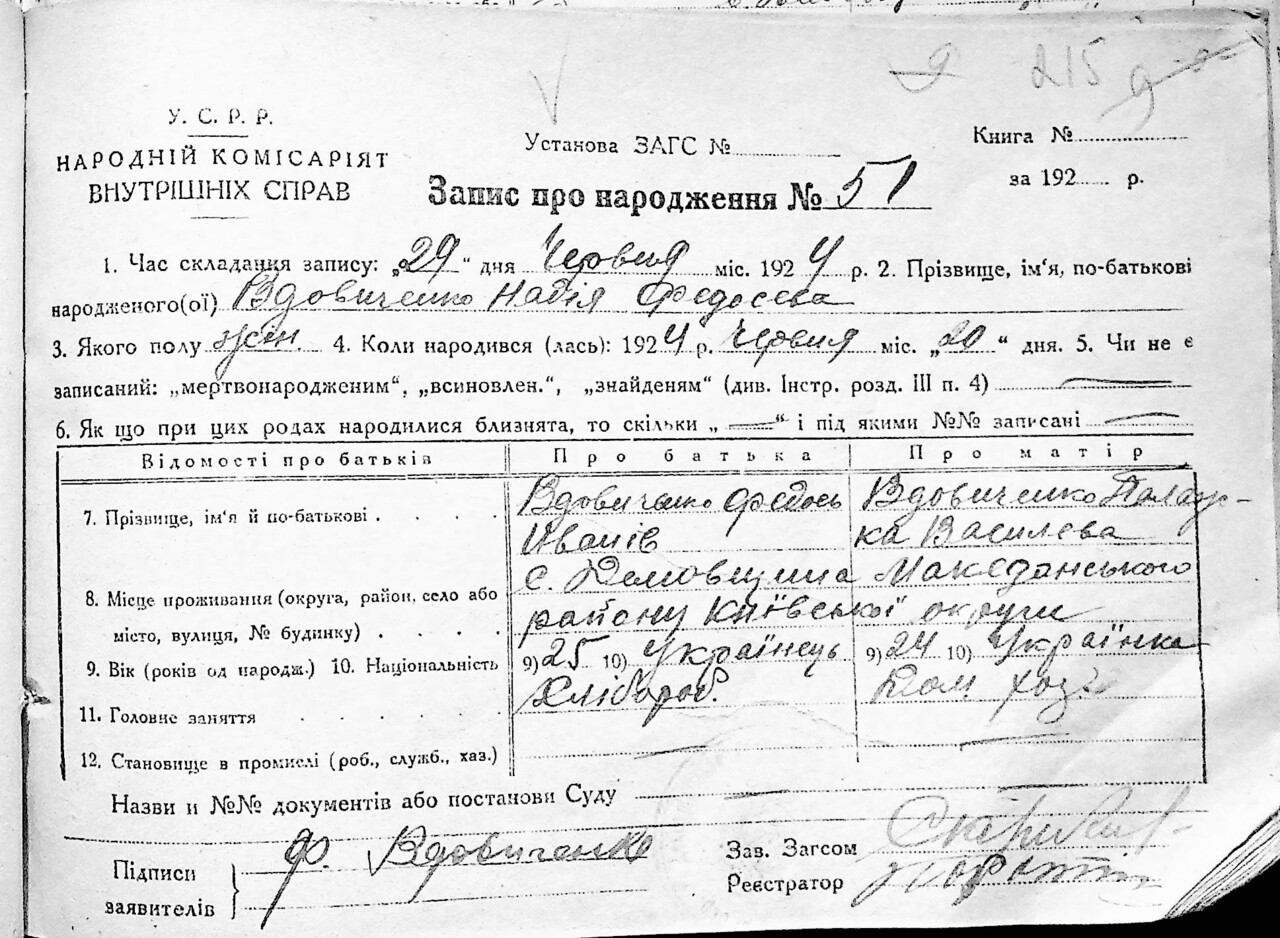 215
У. С. Р. Р.
НАРОДНІЙ КОМІСАРІЯТ
ВНУТРІШНІХ СПРАВ
Установа ЗАГС №
Книга №
за 192 р.
Запис про народження № 51
1. Час складання запису: „29“ дня Червня міс. 1924 р. 2. Прізвище, ім'я, по-батькові
народженого(ої) Вдовиченко Надія Федосєва
3. Якого полу жін. 4. Коли народився (лась): 1924 р. Червня міс. „20“ дня. 5. Чи не є
записаний: „мертвонародженим“, „всиновлен.“, „знайденям“ (див. Інстр. розд. III п. 4) —
6. Як що при цих родах народилися близнята, то скільки „—“ і під якими №№ записані —
Відомості про батьків Про батька Про матір
7. Прізвище, ім'я й по-батькові . . . . Вдовиченко Федось Вдовиченко Палаж-
Иванів ка Василєва
8. Місце проживання (округа, район, село або с. Демовщина Макєданського
місто, вулиця, № будинку) . . . . району Київської округи
9. Вік (років од народж.) 10. Національність 9) 25 10) Українець 9) 24 10) Українка
11. Головне заняття . . . . . Хлібороб. Дом. хоз.
12. Становище в промислі (роб., служб., хаз.) — —
Назви и №№ документів або постанови Суду —
Підписи
заявителів
Ф. Вдовиченко
Зав. Загсом
Реєстратор